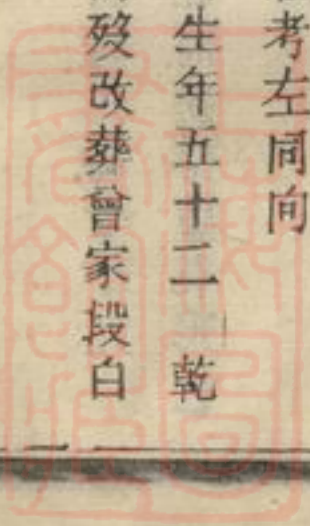 考左同向
生年五十二 乾
歿改葬曾家段白